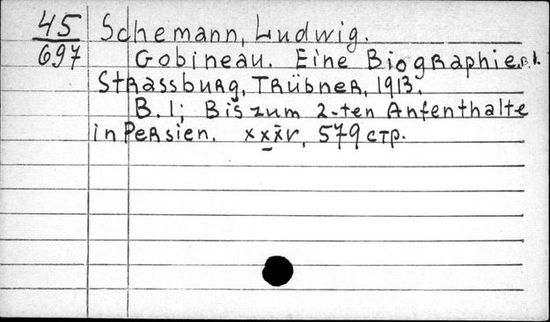 45 Schemann, Ludwig.
697 Gobineau. Eine Biographie. B. 1.
Strassburg, Trübner, 1913.
B. I; Bis zum 2-ten Anfenthalte
in Persien. xxxv, 579 стр.